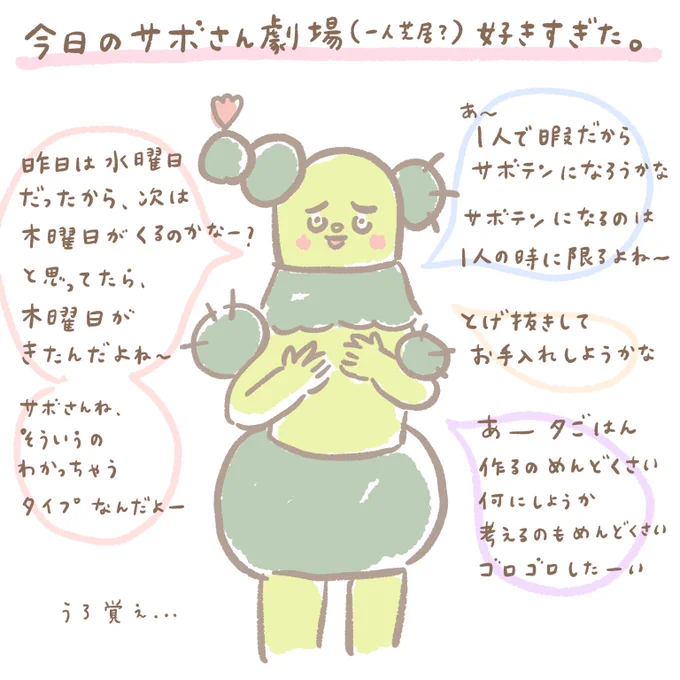 今日のサボさん劇場(一人芝居?)好きすぎた。
昨日は水曜日
だったから、次は
木曜日がくるのかなー?
と思ってたら、
木曜日が
きたんだよね〜
サボさんね、
そういうの
わかっちゃう
タイプなんだよー
あ〜
1人で暇だから
サボテンになろうかな
サボテンになるのは
1人の時に限るよね〜
とげ抜きして
お手入れしようかな
あー夕ごはん
作るのめんどくさい
何にしようか
考えるのもめんどくさい
ゴロゴロしたーい
うろ覚え...